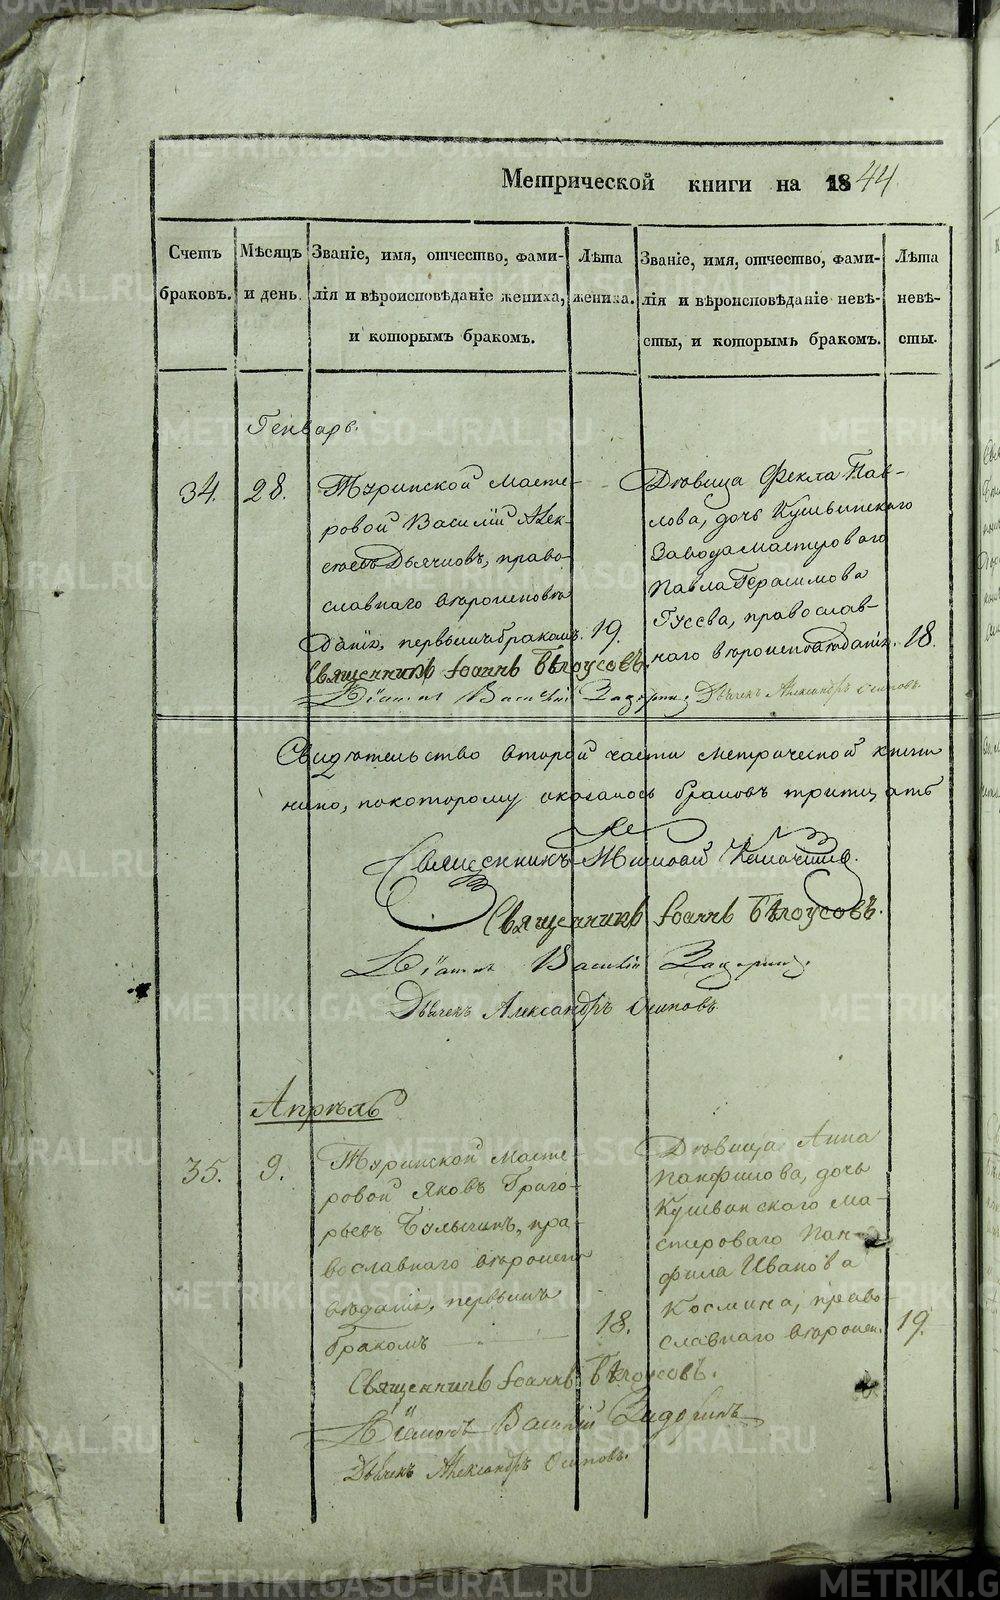 Метрической книги на 1844.
Счетъ браковъ.
Мѣсяцъ и день.
Званіе, имя, отчество, фами-
лія и вѣроисповѣданіе жениха,
и которымъ бракомъ.
Лѣта жениха.
Званіе, имя, отчество, фами-
лія и вѣроисповѣданіе невѣ-
сты, и которымъ бракомъ.
Лѣта невѣ-
сты.
Генварь.
34.
28.
Туринской Масте-
ровой Василій Алек-
сѣевъ Дьячковъ, право-
славнаго вѣроисповѣ-
данія, первымъ бракомъ.
19.
Дѣвица Фекла Пав-
лова, дочь Кушвинскаго
Завода мастероваго
Павла Герасимова
Гусева, православ-
наго вѣроисповѣданія.
18.
Священникъ Іоаннъ Бѣлоусовъ.
Діаконъ Василій
Дьячекъ Александръ Осиповъ.
Свидѣтельство второй части метрической книги
по которому оказалось браковъ тритцать
Священникъ
Священникъ Іоаннъ Бѣлоусовъ.
Діаконъ Василій
Дьячекъ Александръ Осиповъ.
Апрѣль
35.
9.
Туринской Масте-
ровой Яковъ Григо-
рьевъ Булыгинъ, пра-
вославнаго вѣроиспо-
вѣданія, первымъ
бракомъ
18.
Дѣвица Анна
Панфилова, дочь
Кушвинскаго ма-
стероваго Пан-
фила Иванова
Космина, право-
славнаго вѣроисп.
19.
Священникъ Іоаннъ Бѣлоусовъ.
Діаконъ Василій
Дьячекъ Александръ Осиповъ.
METRIKI.GASO-URAL.RU